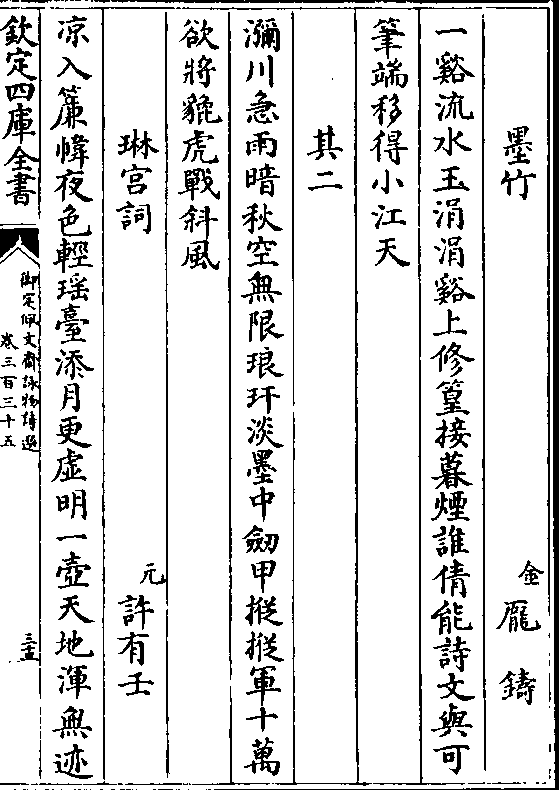 墨竹 金 龎鑄
一谿流水玉涓涓谿上修篁接暮煙誰倩能詩文與可
筆端移得小江天
其二
瀰川急雨暗秋空無限琅玕淡墨中劒甲摐摐軍十萬
欲將貔虎戰斜風
琳宫詞 元 許有壬
凉入簾幃夜色輕瑶臺添月更虚明一壺天地渾無迹
欽定四庫全書 御定佩文齋詠物詩選 卷三百三十五 三五